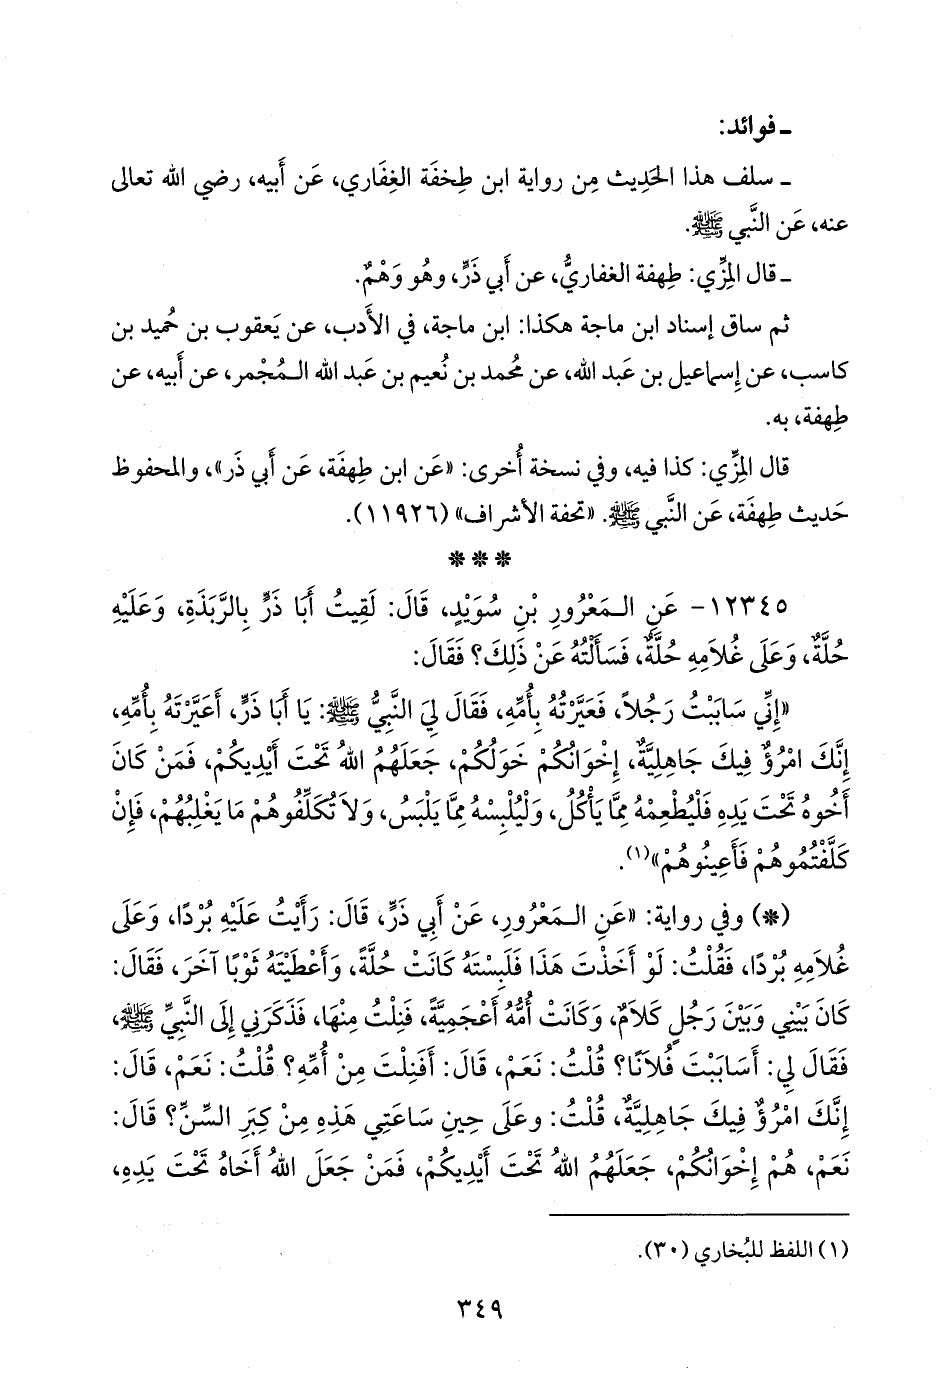 ـ فوائد:
ـ سلف هذا الحَدِيث مِن رواية ابن طِخفَة الغِفَاري، عَن أَبيه، رضي الله تعالى
عنه، عَن النَّبي ﷺ.
ـ قال المِزِّي: طِهفة الغفاريُّ، عن أَبي ذَرٍّ، وهُو وَهْمٌ.
ثم ساق إسناد ابن ماجة هكذا: ابن ماجة، في الأَدب، عن يَعقوب بن حُميد بن
كاسب، عن إِسماعيل بن عَبد الله، عن مُحمد بن نُعيم بن عَبد الله الـمُجْمر، عن أَبيه، عن
طِهفة، به.
قال المِزِّي: كذا فيه، وفي نسخة أُخرى: «عَن ابن طِهفَة، عَن أَبي ذَر»، والمحفوظ
حَديث طِهفَة، عَن النَّبي ﷺ. «تحفة الأشراف» (١١٩٢٦).
***
١٢٣٤٥- عَنِ الـمَعْرُورِ بْنِ سُوَيْدٍ، قَالَ: لَقِيتُ أَبَا ذَرٍّ بِالرَّبَذَةِ، وَعَلَيْهِ
حُلَّةٌ، وَعَلَى غُلاَمِهِ حُلَّةٌ، فَسَأَلْتُهُ عَنْ ذَلِكَ؟ فَقَالَ:
«إِنِّي سَابَبْتُ رَجُلاً، فَعَيَّرْتُهُ بِأُمِّهِ، فَقَالَ لِيَ النَّبِيُّ ﷺ: يَا أَبَا ذَرٍّ، أَعَيَّرْتَهُ بِأُمِّهِ،
إِنَّكَ امْرُؤٌ فِيكَ جَاهِلِيَّةٌ، إِخْوَانُكُمْ خَوَلُكُمْ، جَعَلَهُمُ اللهُ تَحْتَ أَيْدِيكُمْ، فَمَنْ كَانَ
أَخُوهُ تَحْتَ يَدِهِ فَلْيُطْعِمْهُ مِمَّا يَأْكُلُ، وَلْيُلْبِسْهُ مِمَّا يَلْبَسُ، وَلاَ تُكَلِّفُوهُمْ مَا يَغْلِبُهُمْ، فَإِنْ
كَلَّفْتُمُوهُمْ فَأَعِينُوهُمْ»(١).
(*) وفي رواية: «عَنِ الـمَعْرُورِ، عَنْ أَبِي ذَرٍّ، قَالَ: رَأَيْتُ عَلَيْهِ بُرْدًا، وَعَلَى
غُلاَمِهِ بُرْدًا، فَقُلْتُ: لَوْ أَخَذْتَ هَذَا فَلَبِسْتَهُ كَانَتْ حُلَّةً، وَأَعْطَيْتَهُ ثَوْبًا آخَرَ، فَقَالَ:
كَانَ بَيْنِي وَبَيْنَ رَجُلٍ كَلاَمٌ، وَكَانَتْ أُمُّهُ أَعْجَمِيَّةً، فَنِلْتُ مِنْهَا، فَذَكَرَنِي إِلَى النَّبِيِّ ﷺ،
فَقَالَ لِي: أَسَابَبْتَ فُلاَنًا؟ قُلْتُ: نَعَمْ، قَالَ: أَفَنِلْتَ مِنْ أُمِّهِ؟ قُلْتُ: نَعَمْ، قَالَ:
إِنَّكَ امْرُؤٌ فِيكَ جَاهِلِيَّةٌ، قُلْتُ: وعَلَى حِينِ سَاعَتِي هَذِهِ مِنْ كِبَرِ السِّنِّ؟ قَالَ:
نَعَمْ، هُمْ إِخْوَانُكُمْ، جَعَلَهُمُ اللهُ تَحْتَ أَيْدِيكُمْ، فَمَنْ جَعَلَ اللهُ أَخَاهُ تَحْتَ يَدِهِ،
(١) اللفظ للبُخاري (٣٠).
٣٤٩